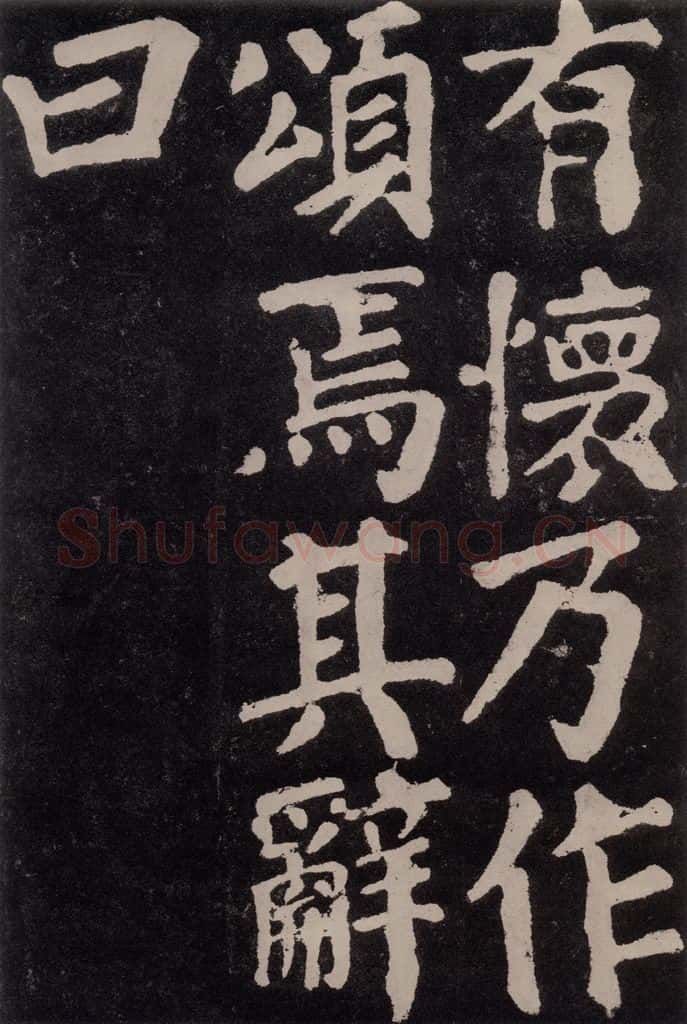 有懷乃作
頌焉其辭
曰
Shufawang.CN